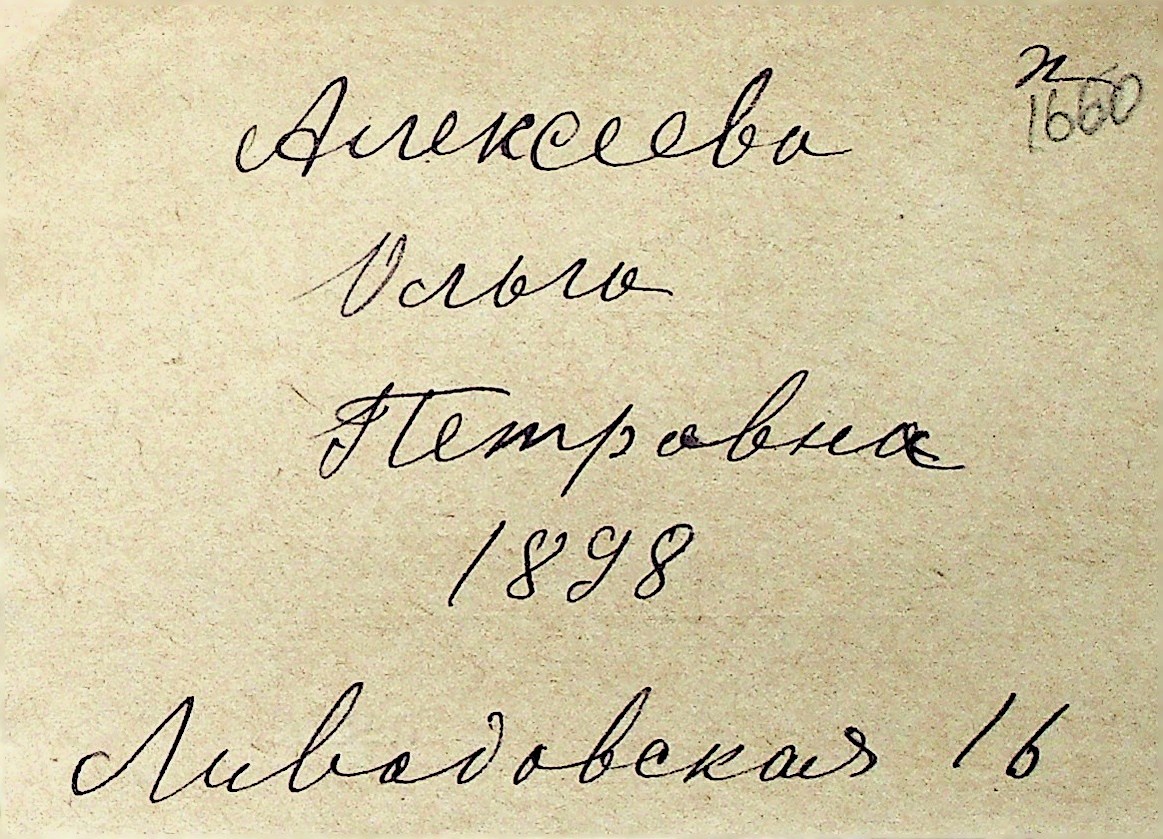 п
1660
Алексеева
Ольга
Петровна
1898
Ливадовская 16